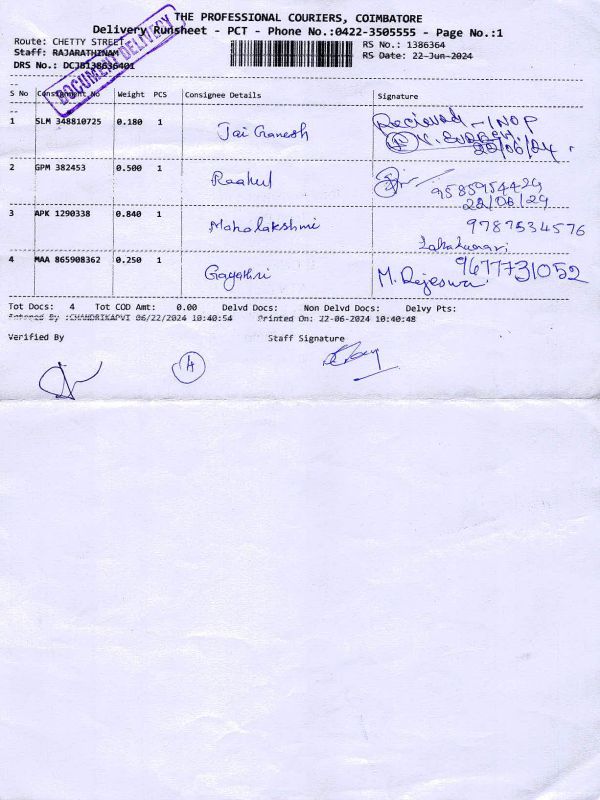 THE PROFESSIONAL COURIERS, COIMBATORE
Delivery Runsheet - PCT - Phone No.:0422-3505555 - Page No.:1
Route: CHETTY STREET
RS No.: 1386364
Staff: RAJARATHINAM
RS Date: 22-Jun-2024
DRS No.: DCJB138636401
DOCUMENT DELIVERY
S No Consignment No Weight PCS Consignee Details Signature
1 SLM 348810725 0.180 1 Jai Ganesh Recieved -1NOP
22/06/24
2 GPM 382453 0.500 1 Raahul 9585954429
22/06/24
3 APK 1290338 0.840 1 Mahalakshmi 9787534576
4 MAA 865908362 0.250 1 Gayathri M. Rajeswari 9677731052
Tot Docs: 4 Tot COD Amt: 0.00 Delvd Docs: Non Delvd Docs: Delvy Pts:
Entered By :CHANDRIKAPVT 06/22/2024 10:40:54 Printed On: 22-06-2024 10:40:48
Verified By Staff Signature
4